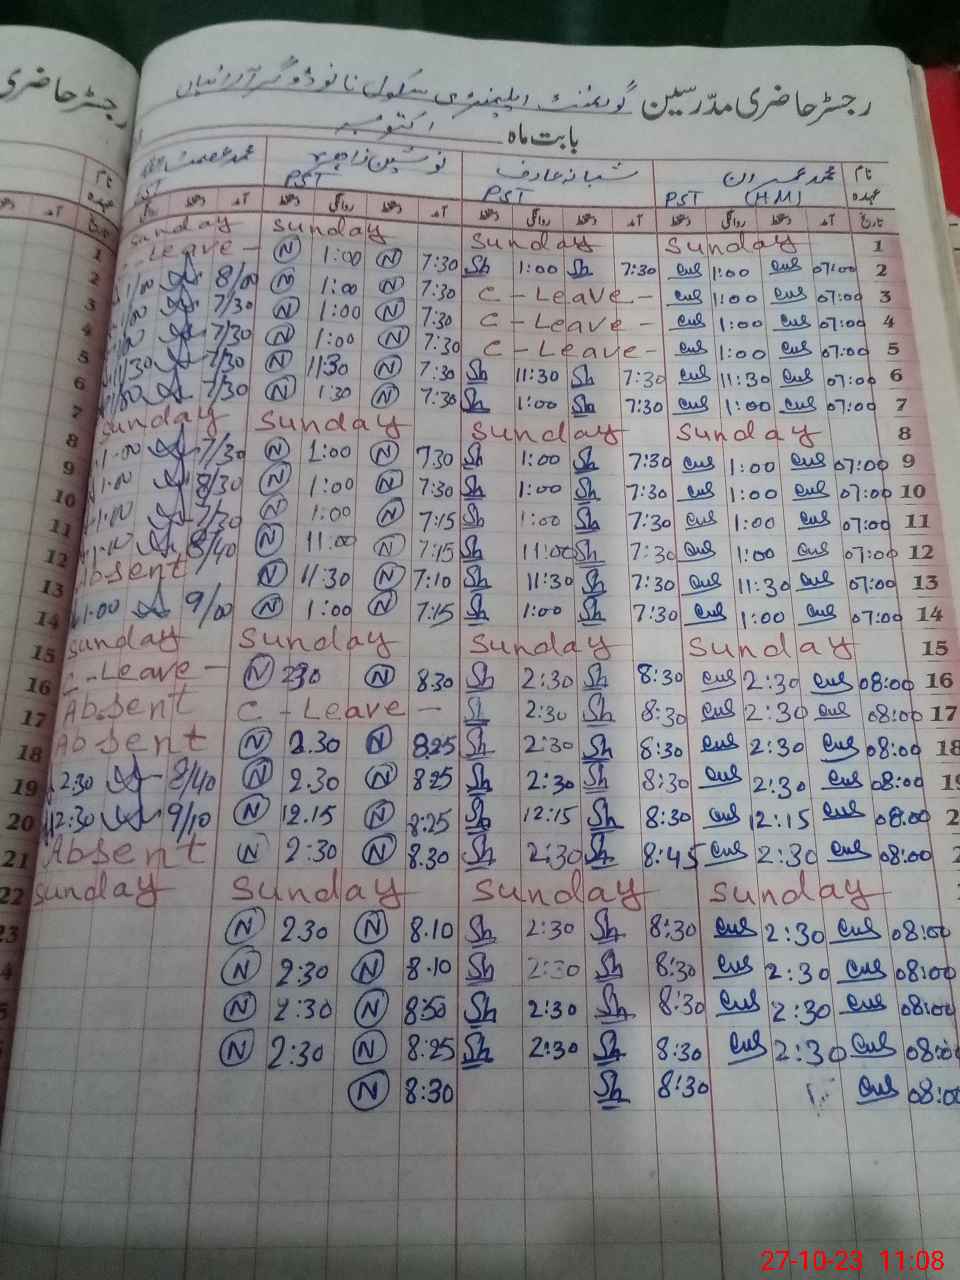 رجسٹر حاضری مدرسین گورنمنٹ ایلیمنٹری سکول نانو ڈوگر آرائیاں
رجسٹر حاضری
بابت ماہ اکتوبر
نام محمد عمران شبانہ عارف نوشین زاہد محمد عصمت اللہ
عہدہ (HM) PST PST PST PST
تاریخ آمد دستخط روانگی دستخط آمد دستخط روانگی دستخط آمد دستخط روانگی دستخط آمد دستخط
1 Sunday Sunday Sunday Sunday
2 07:00 cus 1:00 cus 7:30 Sh 1:00 Sh 7:30 N 1:00 N - Leave -
3 07:00 cus 1:00 cus C - Leave - 7:30 N 1:00 N 8/00 1/00
4 07:00 cus 1:00 cus C - Leave - 7:30 N 1:00 N 7/30 1/00
5 07:00 cus 1:00 cus C - Leave - 7:30 N 1:00 N 7/30
6 07:00 cus 11:30 cus 7:30 Sh 11:30 Sh 7:30 N 11:30 N 7/30 11/30
7 07:00 cus 1:00 cus 7:30 Sh 1:00 Sh 7:30 N 1:30 N 7/30
8 Sunday Sunday Sunday Sunday
9 07:00 cus 1:00 cus 7:30 Sh 1:00 Sh 7.30 N 1:00 N 7/30 1:00
10 07:00 cus 1:00 cus 7:30 Sh 1:00 Sh 7:30 N 1:00 N 8/30 1:00
11 07:00 cus 1:00 cus 7:30 Sh 1:00 Sh 7:15 N 1:00 N 7/30 1:00
12 07:00 cus 1:00 cus 7:30 Sh 11:00 Sh 7:15 N 11:00 N 8/40
13 07:00 cus 11:30 cus 7:30 Sh 11:30 Sh 7:10 N 11:30 N Absent
14 07:00 cus 1:00 cus 7:30 Sh 1:00 Sh 7:15 N 1:00 N 9/00 1:00
15 Sunday Sunday Sunday Sunday
16 08:00 cus 2:30 cus 8:30 Sh 2:30 Sh 8.30 N 230 N C - Leave -
17 08:00 cus 2:30 cus 8:30 Sh 2:30 Sh C - Leave - Absent
18 08:00 cus 2:30 cus 8:30 Sh 2:30 Sh 8:25 N 2.30 N Absent
19 08:00 cus 2:30 cus 8:30 Sh 2:30 Sh 8:25 N 2.30 N 8/40 12:30
20 08:00 cus 12:15 cus 8:30 Sh 12:15 Sh 8:25 N 12.15 N 9/10 12:30
21 08:00 cus 2:30 cus 8:45 Sh 2:30 Sh 8.30 N 2:30 N Absent
22 Sunday Sunday Sunday Sunday
23 08:00 cus 2:30 cus 8:30 Sh 2:30 Sh 8.10 N 2.30 N
08:00 cus 2:30 cus 8:30 Sh 2:30 Sh 8.10 N 2:30 N
08:00 cus 2:30 cus 8:30 Sh 2:30 Sh 8:50 N 2:30 N
08:00 cus 2:30 cus 8:30 Sh 2:30 Sh 8:25 N 2:30 N
08:00 cus 8:30 Sh 8:30 N
27-10-23 11:08